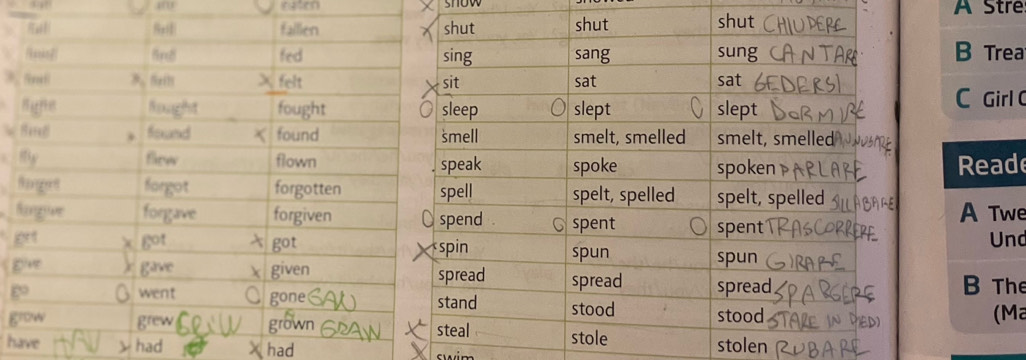 eaten
fall fell fallen
feed fed fed
feel felt felt
fight fought fought
find found found
fly flew flown
forget forgot forgotten
forgive forgave forgiven
get got got
give gave given
go went gone
grow grew grown
have had had
show
shut shut shut CHIUDERE
sing sang sung CANTARE
sit sat sat SEDERSI
sleep slept slept DORMIRE
smell smelt, smelled smelt, smelled
speak spoke spoken PARLARE
spell spelt, spelled spelt, spelled SILLABARE
spend spent spent TRASCORRERE
spin spun spun GIRARE
spread spread spread SPARGERE
stand stood stood STARE IN PIEDI
steal stole stolen RUBARE
swim
A Stre
B Trea
C Girl
Reade
A Twe
Und
B The
(Ma